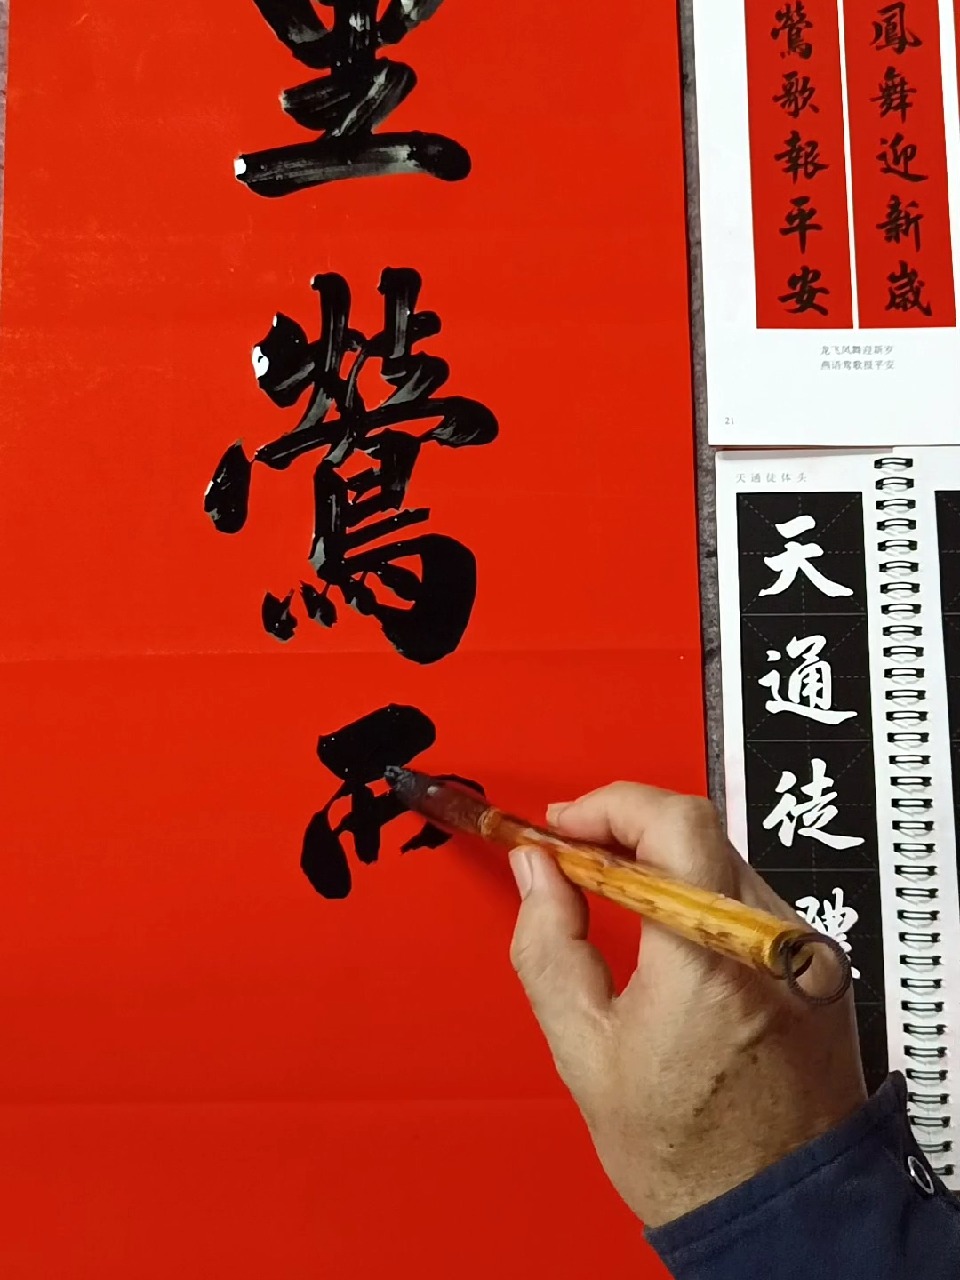 里
鶯
鳳舞迎新歲
鶯歌報平安
龙飞凤舞迎新岁
燕语莺歌报平安
21
天通徒体头
天
通
徒
體